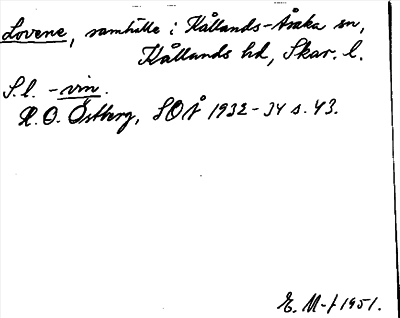 Lovene, samhälle i Kållands-Åsaka sn,
Kållands hd, Skar. l.
S. l. -vin.
H. O. Östberg, SOÅ 1932-34 s. 43.
E. M-f 1951.